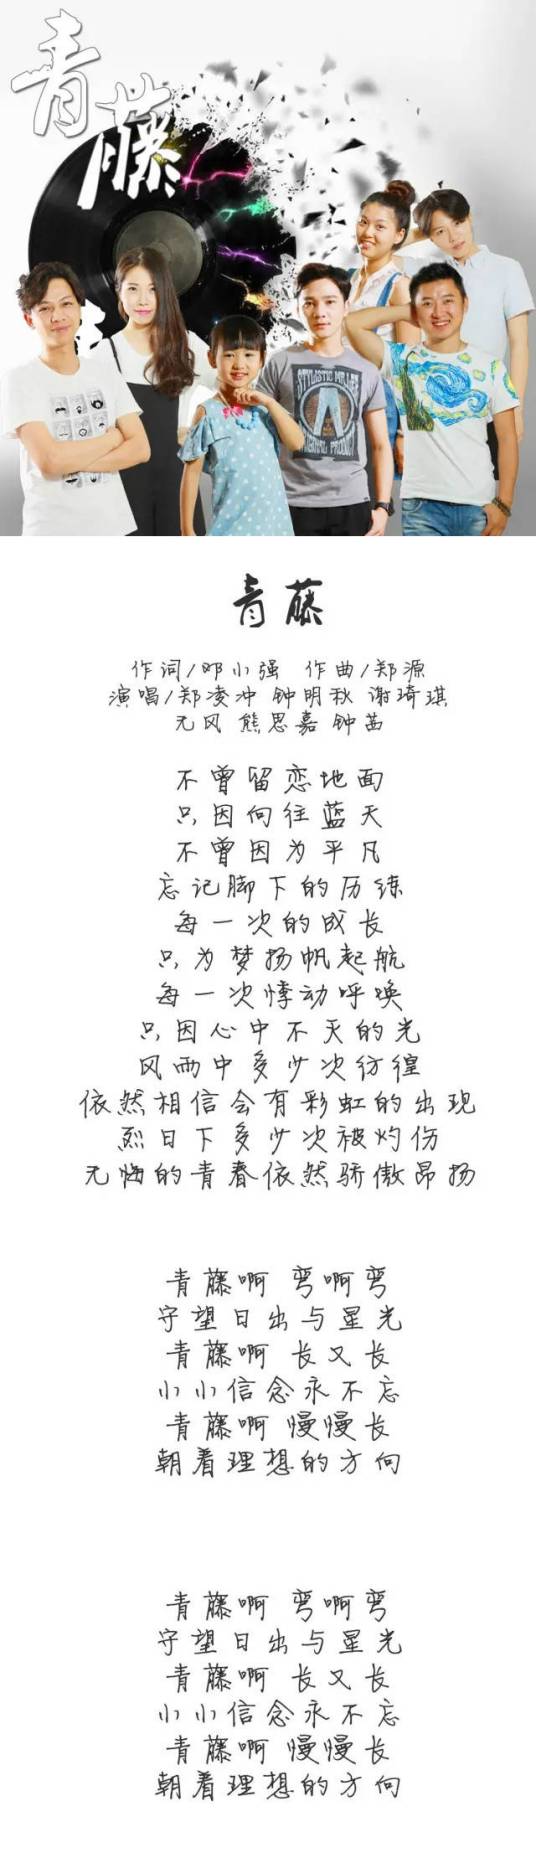 青藤
STYLISTIC MILLER
ORIGINAL PRODUCT
青藤
作词/邓小强 作曲/郑源
演唱/郑凌冲 钟明秋 谢琦琪
无风 熊思嘉 钟茜
不曾留恋地面
只因向往蓝天
不曾因为平凡
忘记脚下的历练
每一次的成长
只为梦扬帆起航
每一次悸动呼唤
只因心中不灭的光
风雨中多少次彷徨
依然相信会有彩虹的出现
烈日下多少次被灼伤
无悔的青春依然骄傲昂扬
青藤啊 弯啊弯
守望日出与星光
青藤啊 长又长
小小信念永不忘
青藤啊 慢慢长
朝着理想的方向
青藤啊 弯啊弯
守望日出与星光
青藤啊 长又长
小小信念永不忘
青藤啊 慢慢长
朝着理想的方向